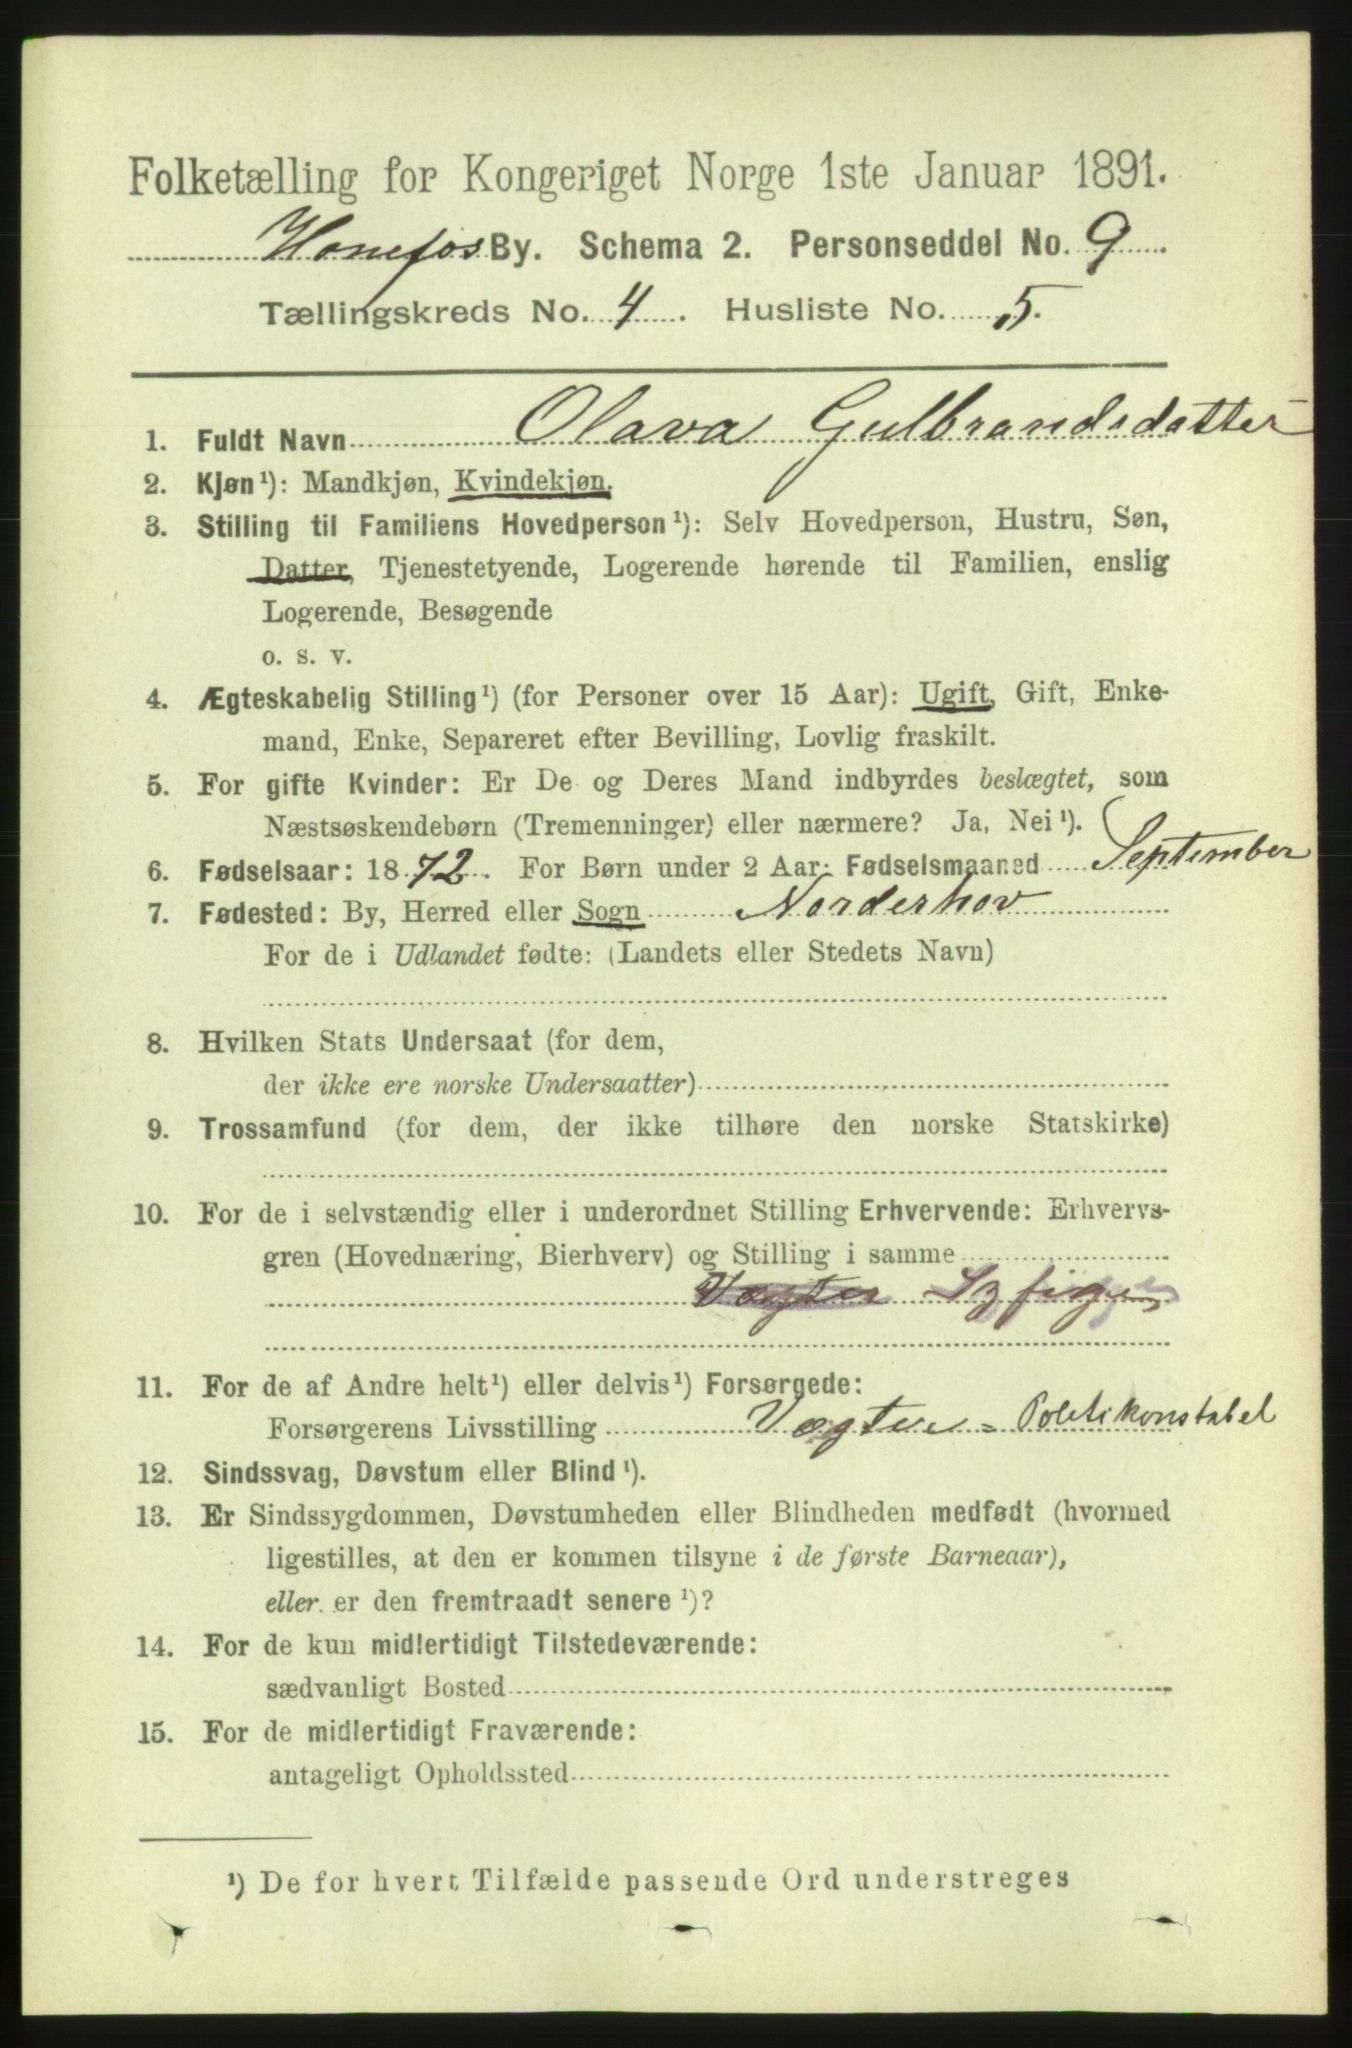 Folketælling for Kongeriget Norge 1ste Januar 1891.
Honefos By. Schema 2. Personseddel No. 9
Tællingskreds No. 4. Husliste No. 5.
1. Fuldt Navn Olava Gulbrandsdatter
2. Kjøn¹): Mandkjøn, Kvindekjøn.
3. Stilling til Familiens Hovedperson¹): Selv Hovedperson, Hustru, Søn,
Datter, Tjenestetyende, Logerende hørende til Familien, enslig
Logerende, Besøgende
o. s. v.
4. Ægteskabelig Stilling¹) (for Personer over 15 Aar): Ugift, Gift, Enke-
mand, Enke, Separeret efter Bevilling, Lovlig fraskilt.
5. For gifte Kvinder: Er De og Deres Mand indbyrdes beslægtet, som
Næstsøskendebørn (Tremenninger) eller nærmere? Ja, Nei¹).
6. Fødselsaar: 1872. For Børn under 2 Aar: Fødselsmaaned September
7. Fødested: By, Herred eller Sogn Norderhov
For de i Udlandet fødte: (Landets eller Stedets Navn)
8. Hvilken Stats Undersaat (for dem,
der ikke ere norske Undersaatter)
9. Trossamfund (for dem, der ikke tilhøre den norske Statskirke)
10. For de i selvstændig eller i underordnet Stilling Erhvervende: Erhvervs-
gren (Hovednæring, Bierhverv) og Stilling i samme
Vægter Syfigen
11. For de af Andre helt¹) eller delvis¹) Forsørgede:
Forsørgerens Livsstilling Vægter = Politikonstabel
12. Sindssvag, Døvstum eller Blind¹).
13. Er Sindssygdommen, Døvstumheden eller Blindheden medfødt (hvormed
ligestilles, at den er kommen tilsyne i de første Barneaar),
eller er den fremtraadt senere¹)?
14. For de kun midlertidigt Tilstedeværende:
sædvanligt Bosted
15. For de midlertidigt Fraværende:
antageligt Opholdssted
¹) De for hvert Tilfælde passende Ord understreges